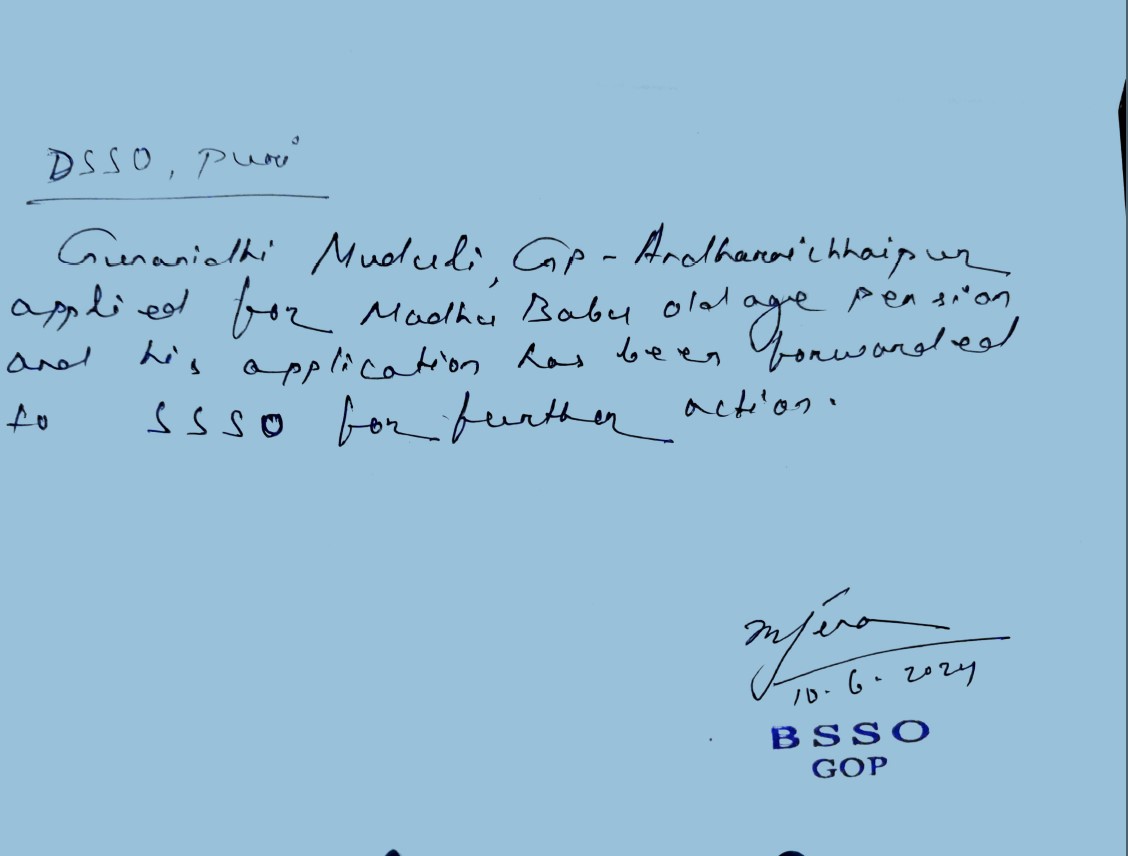 DSSO, Puri
Gunanidhi Muduli, Gp - Andharichhaipur
applied for Madhu Babu old age pension
and his application has been forwarded
to SSSO for further action.
10.6.2024
BSSO
GOP